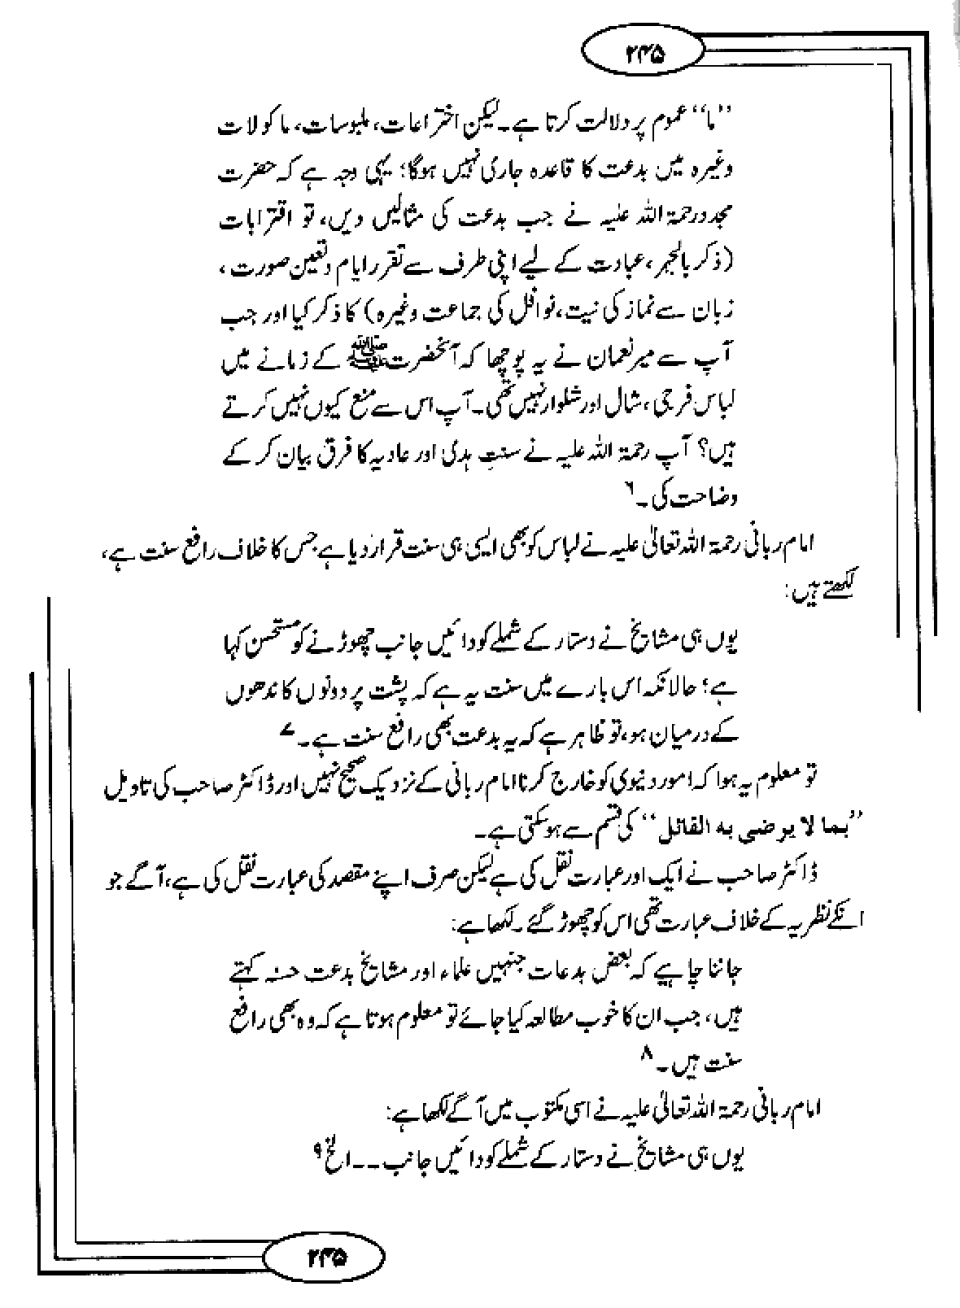 ۲۴۵
’’ما‘‘ عموم پر دلالت کرتا ہے۔ لیکن اختراعات، ملبوسات، ماکولات
وغیرہ میں بدعت کا قاعدہ جاری نہیں ہوگا؛ یہی وجہ ہے کہ حضرت
مجدد رحمۃ اللہ علیہ نے جب بدعت کی مثالیں دیں، تو اقترابات
(ذکر بالجہر، عبادت کے لیے اپنی طرف سے تقرر ایام و تعین صورت،
زبان سے نماز کی نیت، نوافل کی جماعت وغیرہ) کا ذکر کیا اور جب
آپ سے میر نعمان نے یہ پوچھا کہ آنحضرت ﷺ کے زمانے میں
لباس فرجی، شال اور شلوار نہیں تھی۔ آپ اس سے منع کیوں نہیں کرتے
ہیں؟ آپ رحمۃ اللہ علیہ نے سنتِ ہدیٰ اور عادیہ کا فرق بیان کر کے
وضاحت کی۔۶
امام ربانی رحمۃ اللہ تعالیٰ علیہ نے لباس کو بھی ایسی ہی سنت قرار دیا ہے جس کا خلاف رافع سنت ہے،
لکھتے ہیں:
یوں ہی مشایخ نے دستار کے شملے کو دائیں جانب چھوڑنے کو مستحسن کہا
ہے؛ حالانکہ اس بارے میں سنت یہ ہے کہ پشت پر دونوں کاندھوں
کے درمیان ہو، تو ظاہر ہے کہ یہ بدعت بھی رافع سنت ہے۔۷
تو معلوم یہ ہوا کہ امور دنیوی کو خارج کرنا امام ربانی کے نزدیک صحیح نہیں اور ڈاکٹر صاحب کی تاویل
’’بما لا یرضی به القائل‘‘ کی قسم سے ہو سکتی ہے۔
ڈاکٹر صاحب نے ایک اور عبارت نقل کی ہے لیکن صرف اپنے مقصد کی عبارت نقل کی ہے، آگے جو
انکے نظریہ کے خلاف عبارت تھی اس کو چھوڑ گئے۔ لکھا ہے:
جاننا چاہیے کہ بعض بدعات جنہیں علماء اور مشایخ بدعت حسنہ کہتے
ہیں، جب ان کا خوب مطالعہ کیا جائے تو معلوم ہوتا ہے کہ وہ بھی رافع
سنت ہیں۔۸
امام ربانی رحمۃ اللہ تعالیٰ علیہ نے اسی مکتوب میں آگے لکھا ہے:
یوں ہی مشایخ نے دستار کے شملے کو دائیں جانب ۔۔ الخ۹
۲۴۵